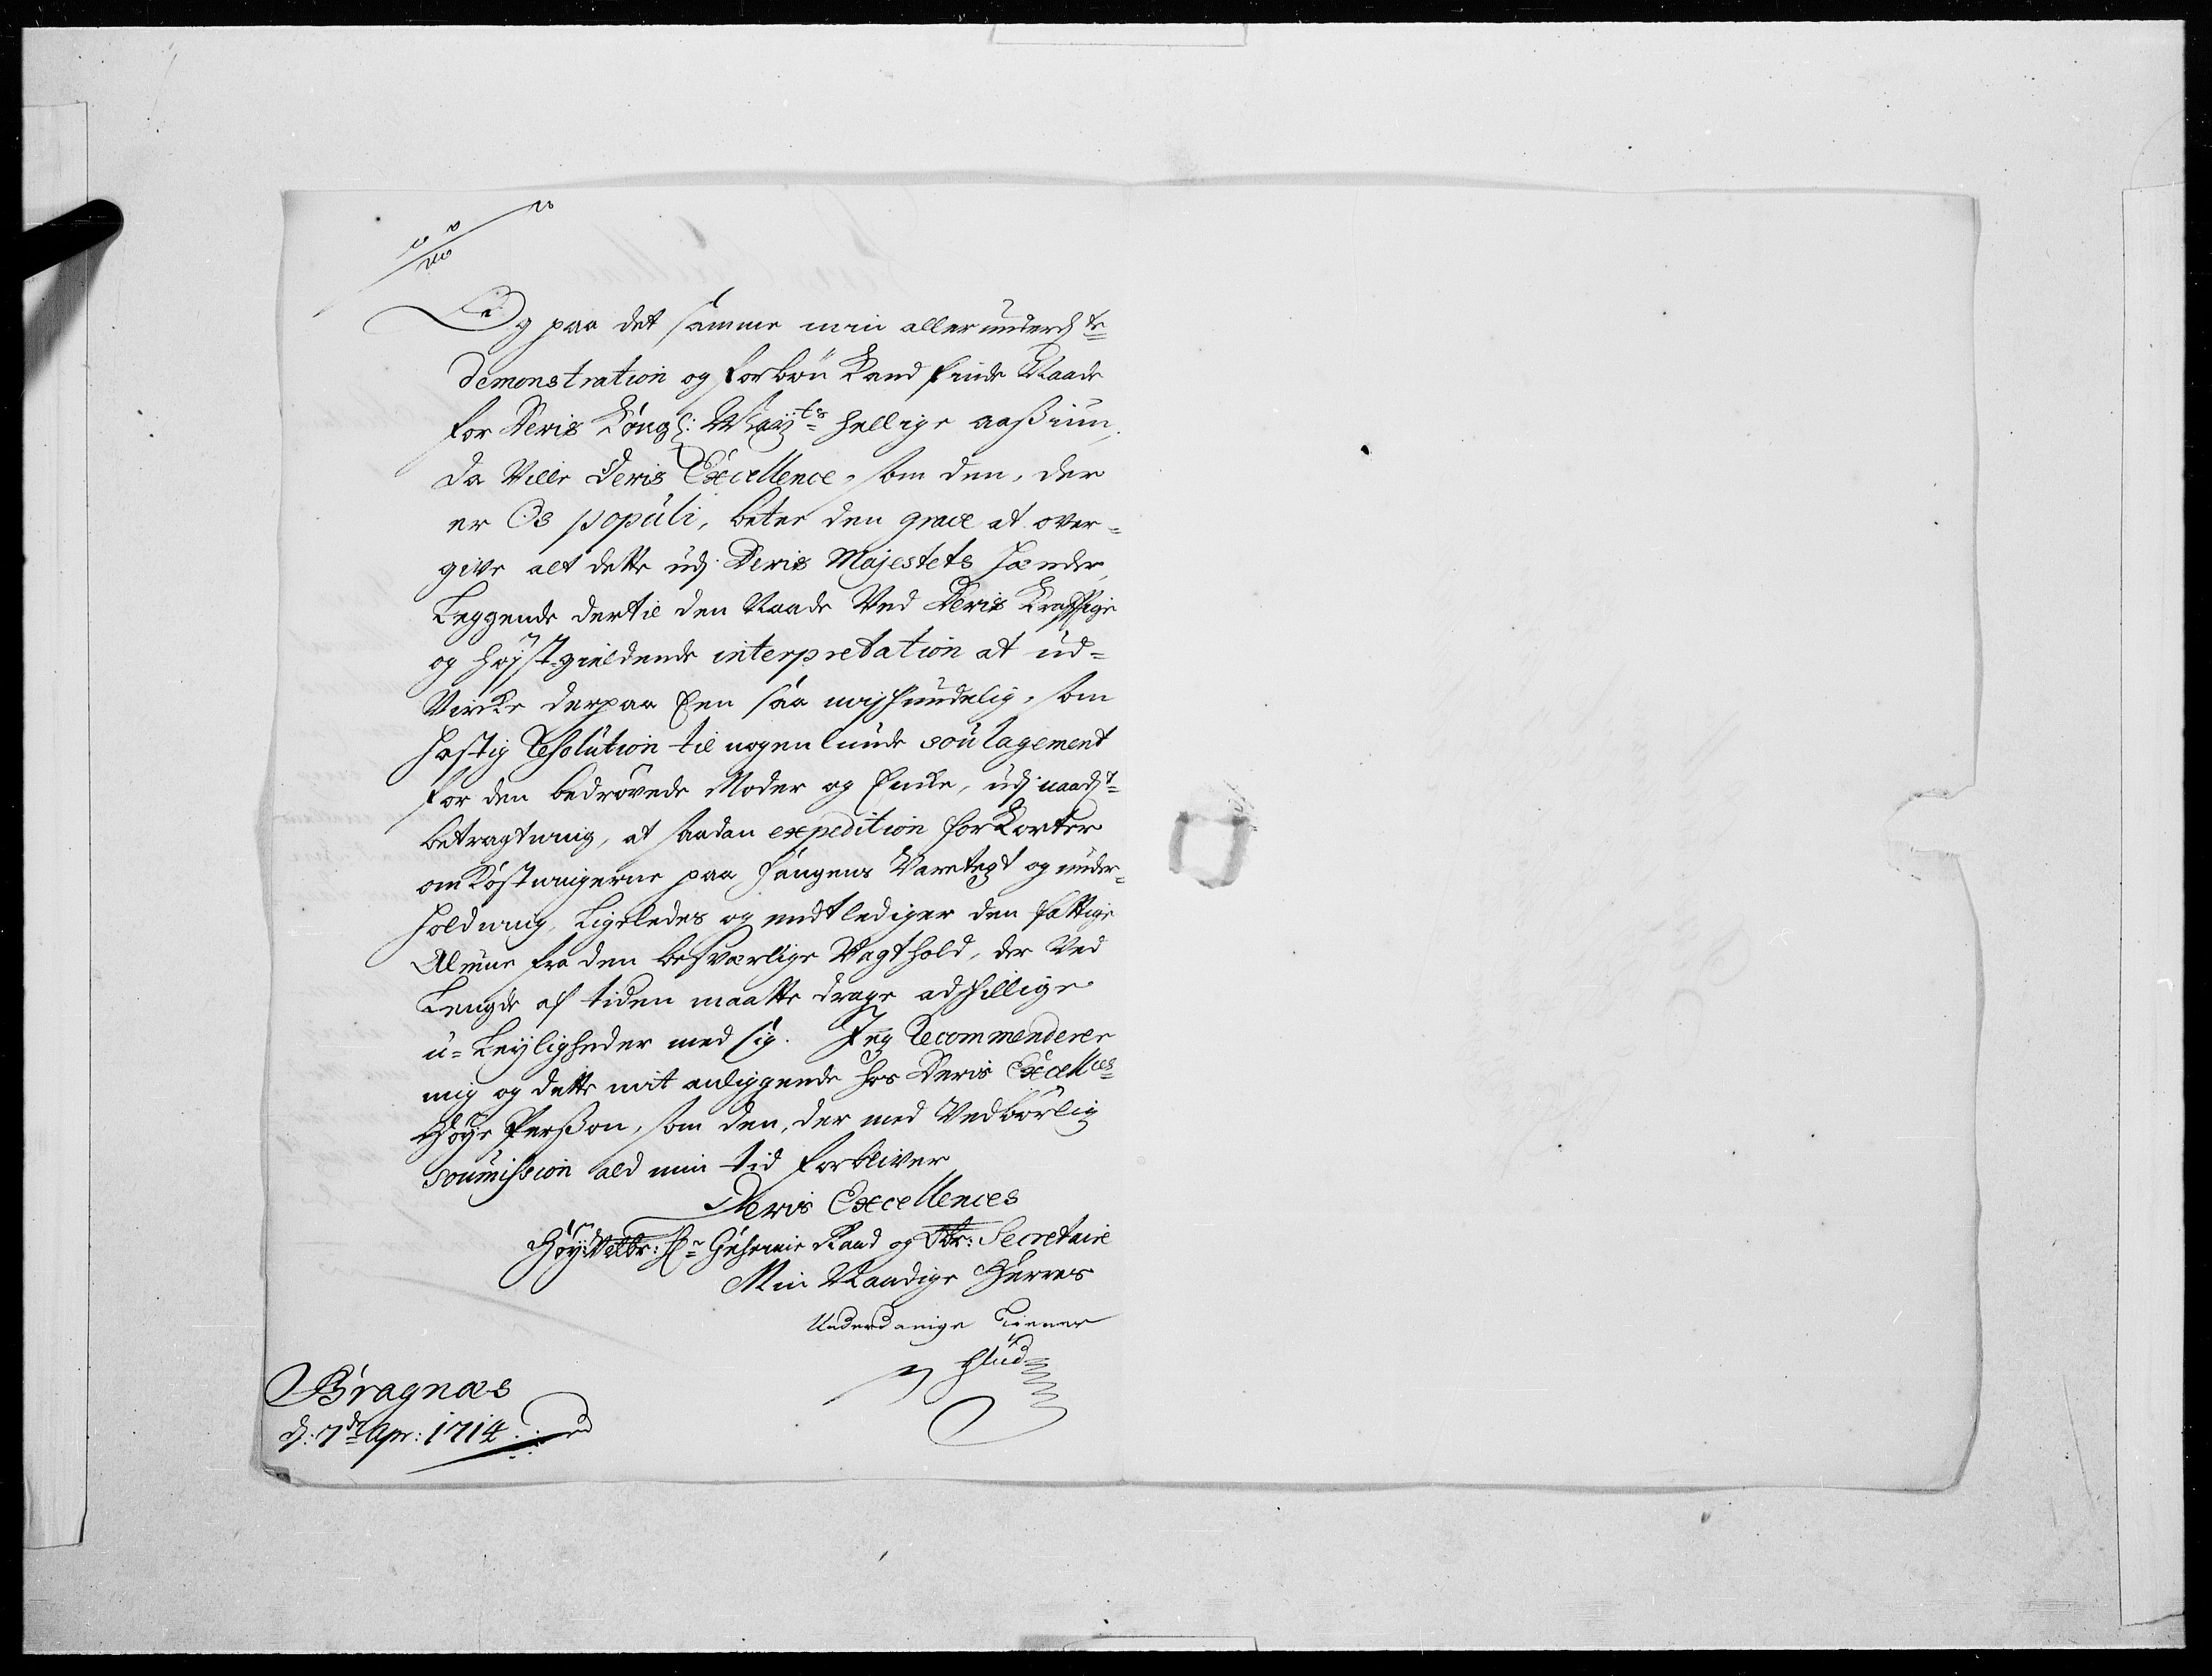 Og paa det samme min allerunderdste
demonstration og forbøn kand finde Naade
for Deris Kongl: Mayts hellige aaßiun,
da Ville Deris Excellence, som den, der
er Os populi, beter den grace at over=
give alt dette udj Deris Majestets hænder,
Leggende dertil den Naade Ved Deris Krafftige
og højst-gieldende interpretation at ud=
Vircke derpaa Een saa mijskundelig, som
hastig Resolution til nogenlunde soulagement
for den bedrøvede Moder og Encke, udj naadst
betragtning, at saadan expedition forkorter
omkostningerne paa fangens Varetegt og under=
holdning, Ligeledes og endtlediger den fattige
Almue fra den besværlige Vagthold, der Ved
Lengde af tiden maatte drage adskillige
u=Leyligheder med sig. Jeg Recommenderer
mig og dette mit anliggende hos Deris Excellces
Høye Perßon, som den, der med Vedbørlig
soumission ald min tid forbliver
Deris Excellences
HøyVelbr: Hr Geheime Raad og Obr: Secretaire
Min Naadige Herres
Underdanige Tiener
Glud
Bragnæs
d: 7de Apr: 1714